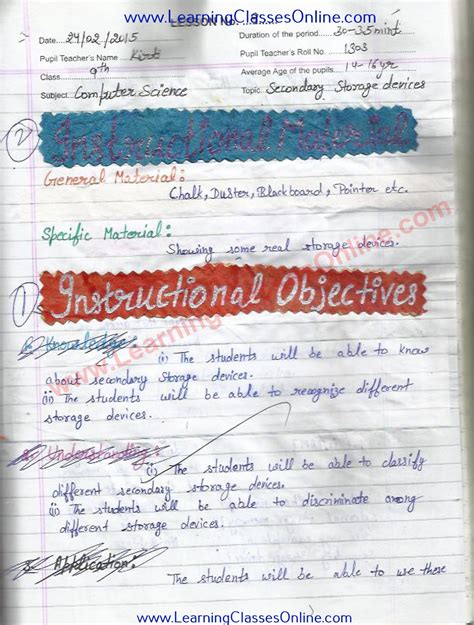 www.LearningClassesOnline.com
LESSON No.
Date 24/02/2015
Duration of the period 30-35mint
Pupil Teacher's Name Kirti
Pupil Teacher's Roll No. 1303
Class 9th
Average Age of the pupils 14-16yr
Subject Computer Science
Topic Secondary Storage devices
2 Instructional Material
General Material:
Chalk, Duster, Blackboard, Pointer etc.
Specific Material:
Showing some real storage devices.
1 Instructional Objectives
Knowledge:
(i) The students will be able to know
about secondary Storage devices.
(ii) The students will be able to recognize different
storage devices.
Understanding:
(i) The students will be able to classify
different secondary storage devices.
(ii) The students will be able to discriminate among
different storage devices.
Application:
The students will be able to use these
www.LearningClassesOnline.com
www.LearningClassesOnline.com